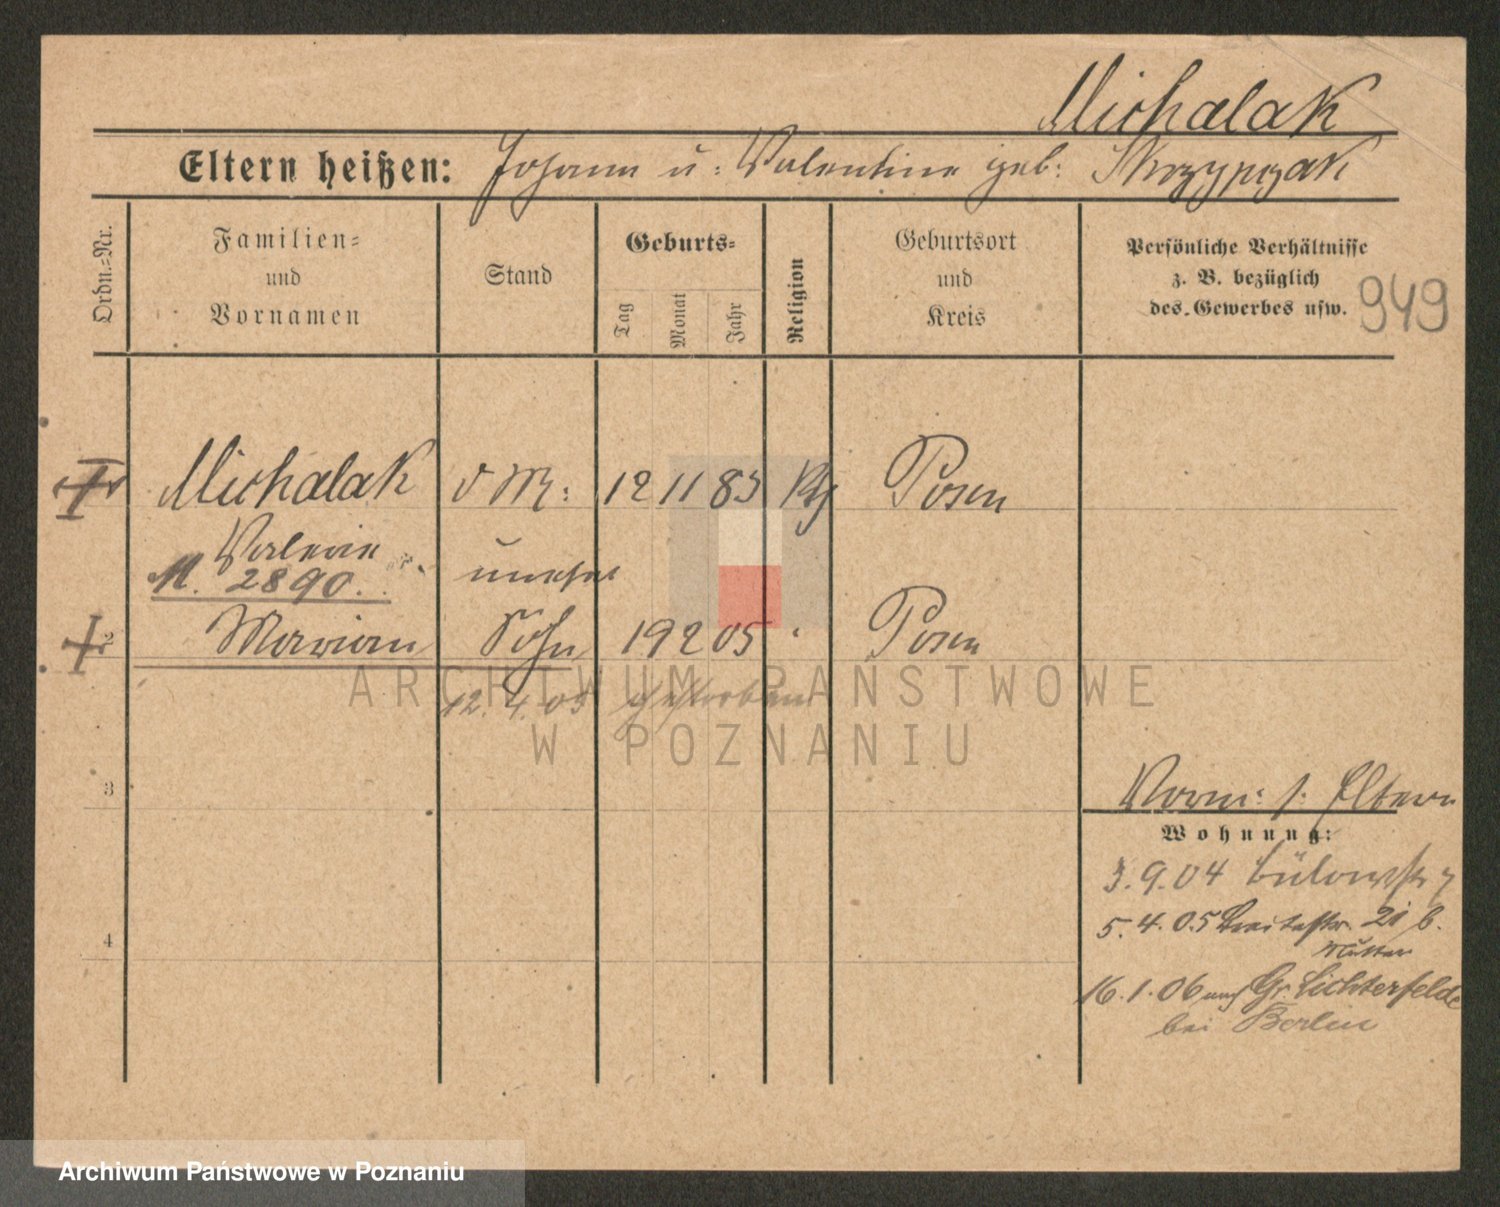 Michalak
Eltern heißen: Johann u. Valentine geb: Skrzypczak
Ordn.-Nr.
Familien- und Vornamen
Stand
Geburts-
Tag
Monat
Jahr
Religion
Geburtsort und Kreis
Persönliche Verhältnisse
z. B. bezüglich
des Gewerbes usw.
949
Michalak 12 11 83 Posen
Valerie
M. 2890. unehel
2 Marian Sohn 19 2 05 Posen
12. 4. 05 gestorben
ARCHIWUM PAŃSTWOWE
W POZNANIU
3
Vorm: s: Eltern
Wohnung:
3.9.04 Bülowstr 7
4
5.4.05 Breitestr. 21 b.
Mutter
16.1.06 nach Gr. Lichterfelde
bei Berlin
Archiwum Państwowe w Poznaniu